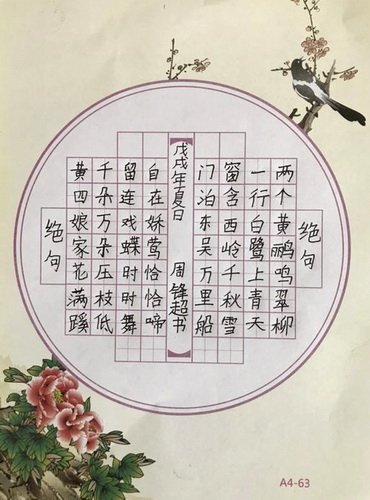 绝句
两个黄鹂鸣翠柳
一行白鹭上青天
窗含西岭千秋雪
门泊东吴万里船
绝句
黄四娘家花满蹊
千朵万朵压枝低
留连戏蝶时时舞
自在娇莺恰恰啼
戊戌年夏日 周锋超书
A4-63